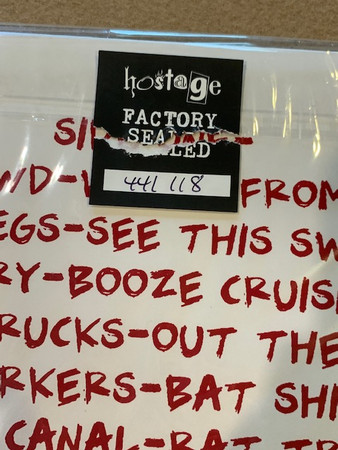 hostage
FACTORY
SEALED
441 118
SI
WD-
FROM
EGS-SEE THIS SW
RY-BOOZE CRUIS
RUCKS-OUT THE
RKERS-BAT SHI
CANAL-RAT TR